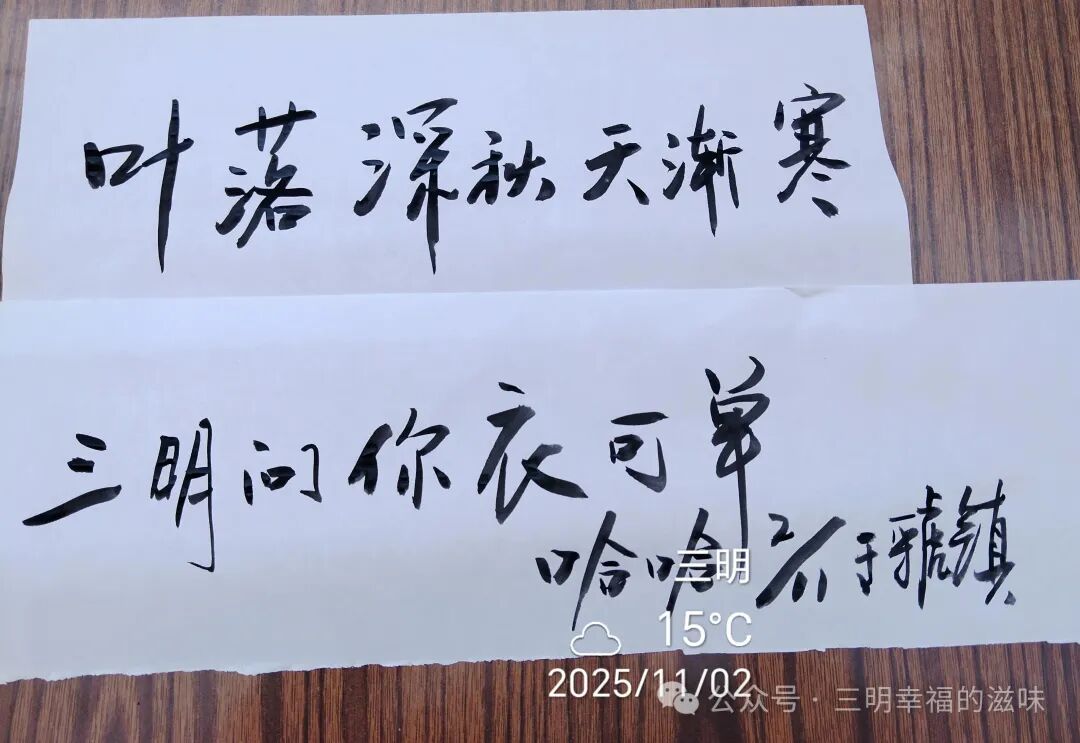 叶落深秋天渐寒
三明问你衣可单
哈哈 2/11于虢镇
三明
15°C
2025/11/02
公众号·三明幸福的滋味